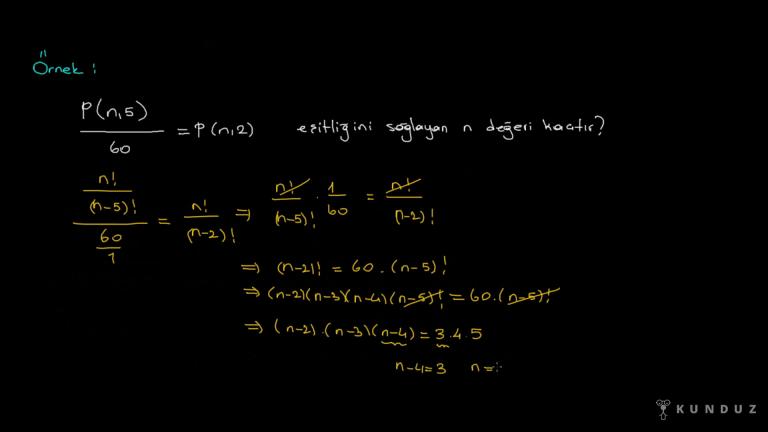 Örnek :
P(n,5) / 60 = P(n,2) eşitliğini sağlayan n değeri kaçtır?
n! / (n-5)! / 60/1 = n! / (n-2)! ⇒ n! / (n-5)! . 1/60 = n! / (n-2)!
⇒ (n-2)! = 60 . (n-5)!
⇒ (n-2)(n-3)(n-4)(n-5)! = 60.(n-5)!
⇒ (n-2).(n-3)(n-4) = 3.4.5
n-4=3 n=
KUNDUZ